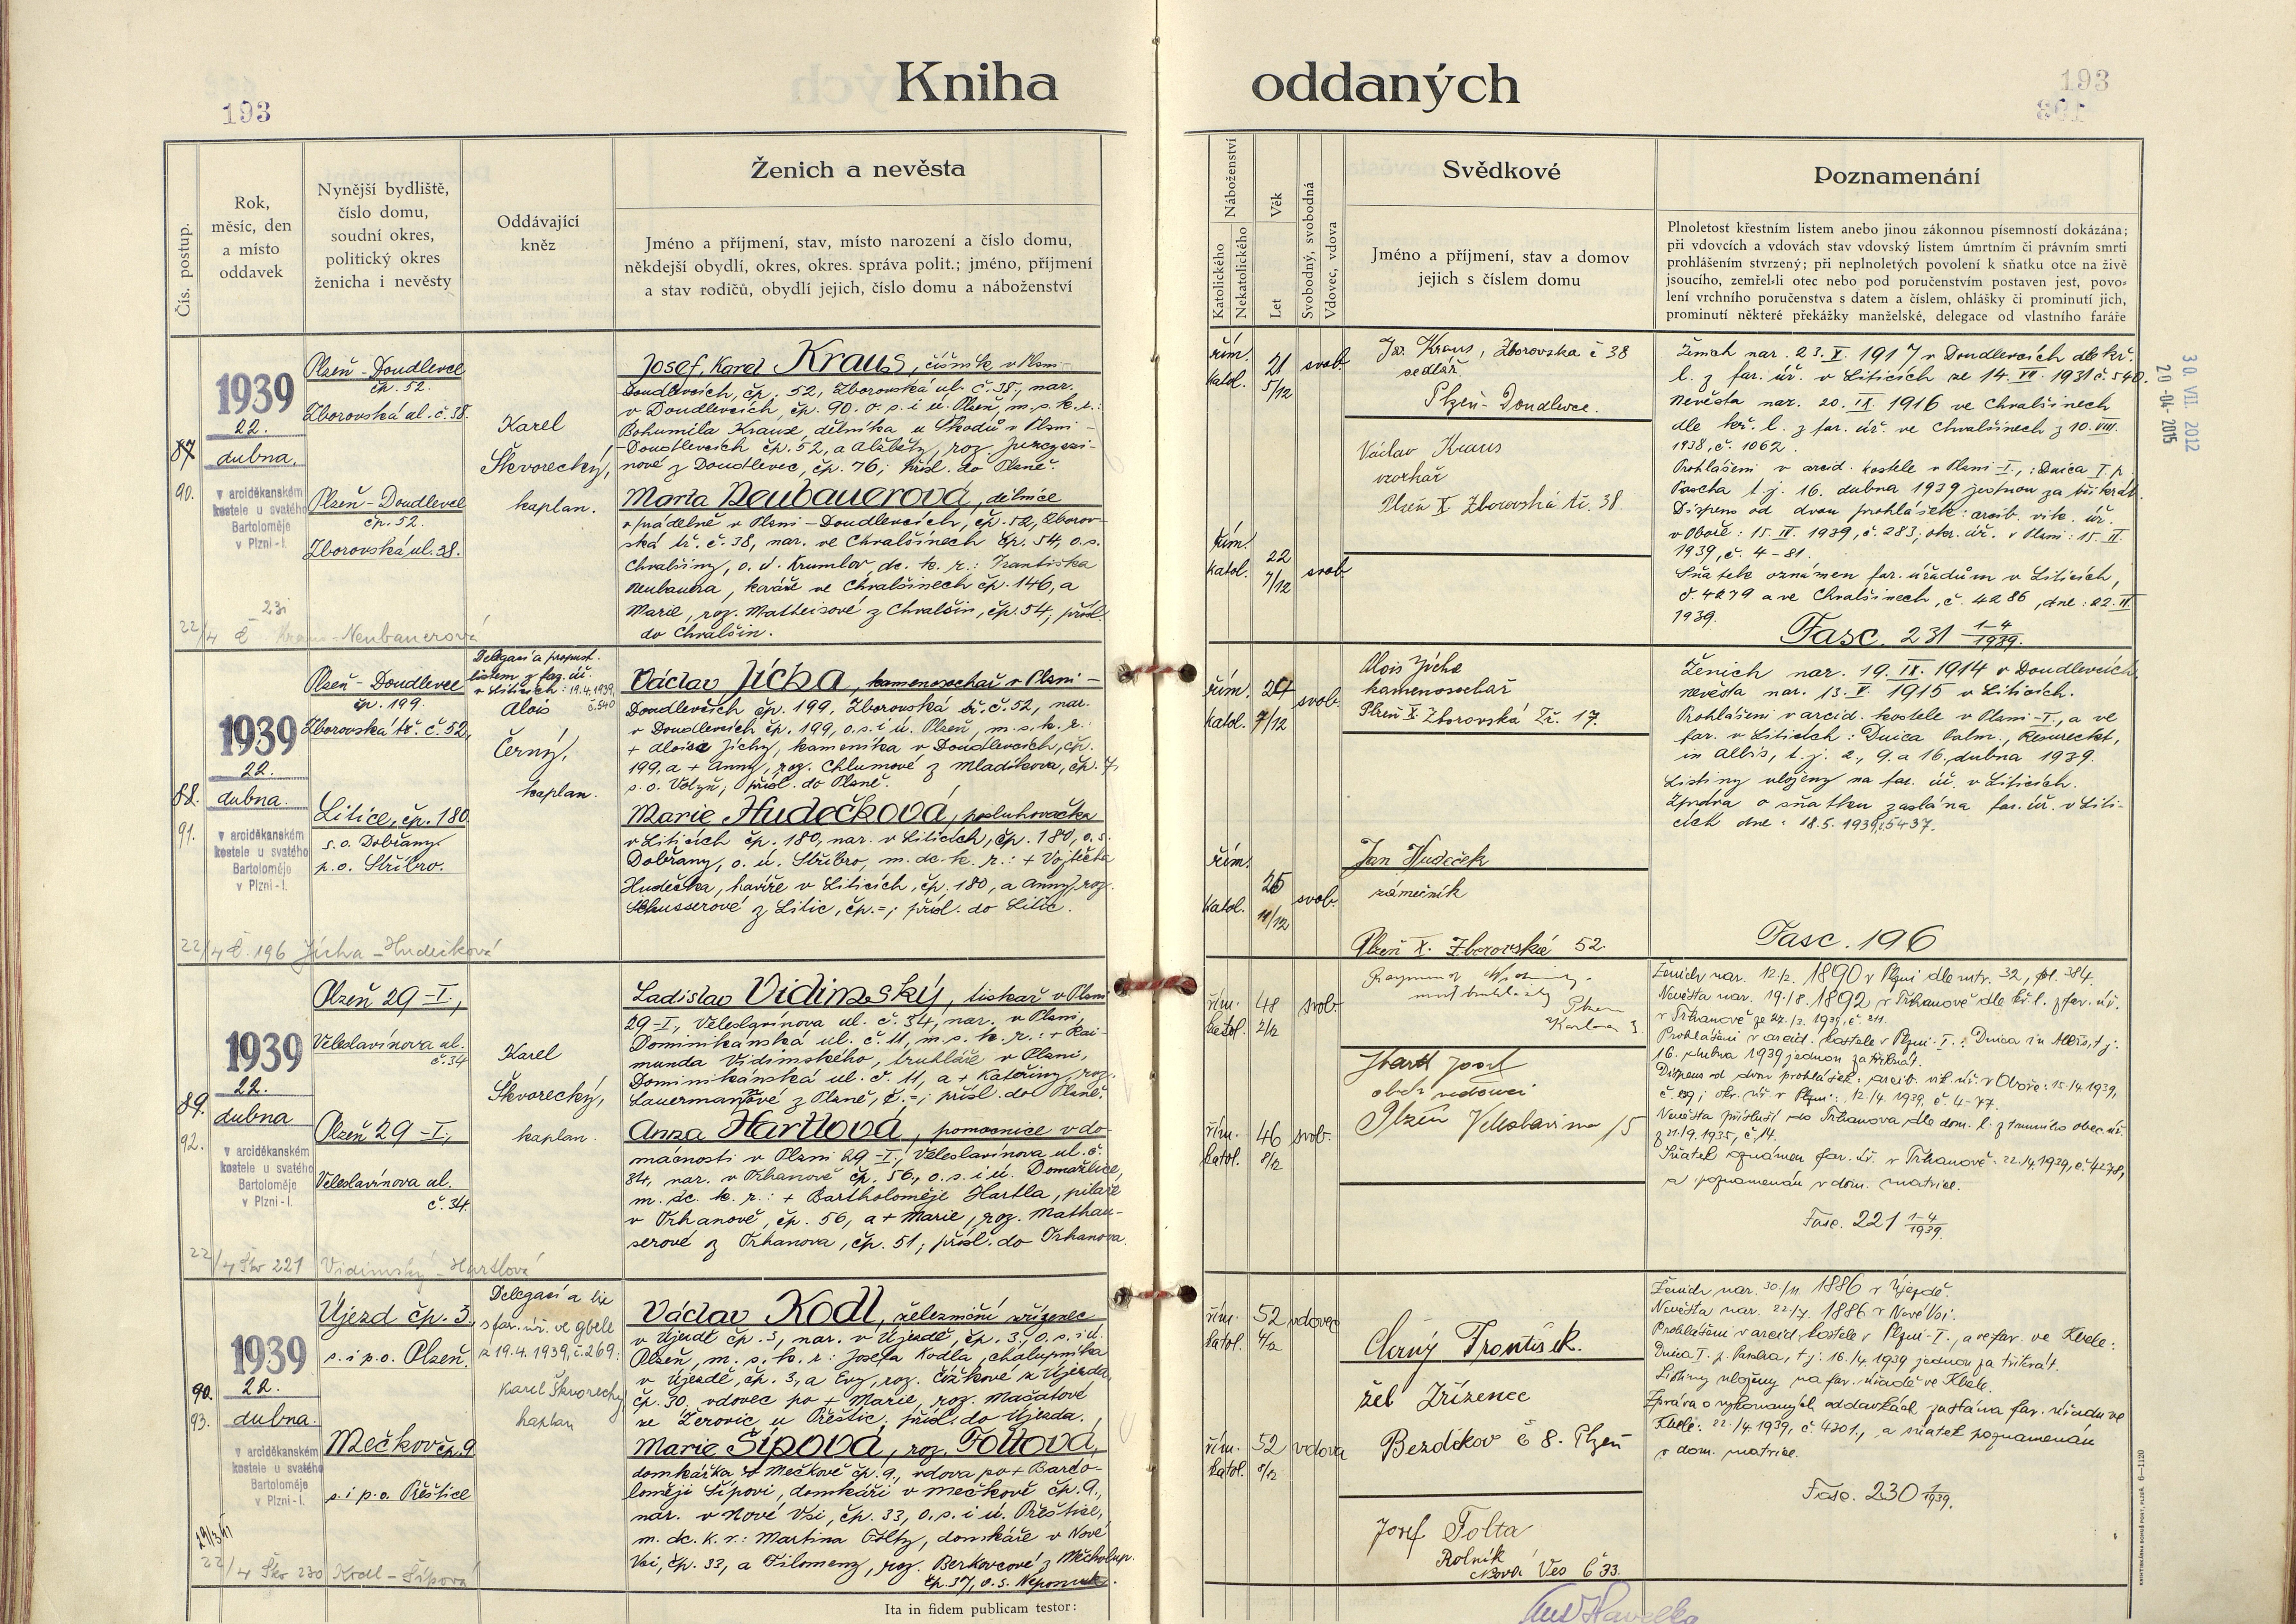 Kniha oddaných
193
193
Čís. postup.
Rok,
měsíc, den
a místo
oddavek
Nynější bydliště,
číslo domu,
soudní okres,
politický okres
ženicha i nevěsty
Oddávající
kněz
Ženich a nevěsta
Jméno a příjmení, stav, místo narození a číslo domu,
někdejší obydlí, okres, okres. správa polit.; jméno, příjmení
a stav rodičů, obydlí jejich, číslo domu a náboženství
Náboženství
Katolického
Nekatolického
Věk
Let
Svobodný, svobodná
Vdovec, vdova
Svědkové
Jméno a příjmení, stav a domov
jejich s číslem domu
Poznamenání
Plnoletost křestním listem anebo jinou zákonnou písemností dokázána;
při vdovcích a vdovách stav vdovský listem úmrtním či právním smrti
prohlášením stvrzený; při neplnoletých povolení k sňatku otce na živě
jsoucího, zemřel-li otec nebo pod poručenstvím postaven jest, povo-
lení vrchního poručenstva s datem a číslem, ohlášky či prominutí jich,
prominutí některé překážky manželské, delegace od vlastního faráře
30. VII. 2012
20-04-2015
87
90.
1939
22.
dubna.
v arciděkanském
kostele u svatého
Bartoloměje
v Plzni-I.
Plzeň-Doudlevce
čp. 52.
Zborovská ul. č. 38.
Plzeň-Doudlevce
čp. 52.
Zborovská ul. 38.
Karel
Škvorecký,
kaplan.
Josef, Karel Kraus, číšník v Plzni-
Doudlevcích, čp. 52, Zborovská ul. č. 38, nar.
v Doudlevcích, čp. 90. o. s. i ú. Plzeň, m. s. k. r.:
Bohumila Krause, dělníka u Škodů v Plzni-
Doudlevcích čp. 52, a Alžběty, roz.
nové z Doudlevec, čp. 76; přísl. do Plzně.
Marta Neubauerová, dělnice
v prádelně v Plzni-Doudlevcích, čp. 52, Zborov-
ská tř. č. 38, nar. ve Chvalšinech čp. 54, o. s.
Chvalšiny, o. ú. Krumlov, dc. k. r.: Františka
Neubauera, kováře ve Chvalšinech čp. 146, a
Marie, roz. Matheisové z Chvalšin, čp. 54, přísl.
do Chvalšin.
řím.
katol.
21
5/12
svob.
řím.
katol.
22
7/12
svob.
Jos. Kraus, Zborovska č 38
sedlář.
Plzeň-Doudlevce.
Václav Kraus
Plzeň X Zborovská tř. 38.
Ženich nar. 23. X. 1917 v Doudlevcích dle kř.
l. z far. úř. v Liticích ze 14. VII. 1931 č. 540.
Nevěsta nar. 20. IX. 1916 ve Chvalšinech
dle kř. l. z far. úř. ve Chvalšinech z 10. VIII.
1938, č. 1062.
Prohlášeni v arcid. kostele v Plzni-I.,: Dnica I. p.
Pascha t. j. 16. dubna 1939 jednou za třikrát.
Dispens od dvou prohlášek: arcib. vik. úř.
v Oboře: 15. IV. 1939, č. 283; okr. úř. v Plzni: 15. IV.
1939, č. 4-81.
Sňatek oznámen far. úřadům v Liticích,
č. 4279 a ve Chvalšinech, č. 4286, dne: 22. IV.
1939.
Fasc. 231 1-4/1939.
22/4 Kraus-Neubauerová
88.
91.
1939
22.
dubna.
v arciděkanském
kostele u svatého
Bartoloměje
v Plzni-I.
Plzeň-Doudlevce
čp. 199.
Zborovská tř. č. 52,
Litice, čp. 180
s. o. Dobřany.
p. o. Stříbro.
Delegací a propust.
listem z far. úř.
v Liticích: 19.4.1939,
č. 540
Alois
Černý,
kaplan.
Václav Jícha, kamenosochař v Plzni-
Doudlevcích čp. 199, Zborovská tř. č. 52, nar.
v Doudlevcích čp. 199, o. s. i ú. Plzeň, m. s. k. r.:
+ Aloise Jíchy, kameníka v Doudlevcích, čp.
199, a + Anny, roz. Chlumové z Mladíkova, čp. 7,
s. o. Volyň; přísl. do Plzně.
Marie Hudečková, posluhovačka
v Liticích čp. 180, nar. v Liticích, čp. 180, o. s.
Dobřany, o. ú. Stříbro, m. dc. k. r.: + Vojtěcha
Hudečka, havíře v Liticích, čp. 180, a Anny, roz.
Schusserové z Litic, čp. =; přísl. do Litic.
řím.
katol.
24
7/12
svob.
řím.
katol.
11/12
svob.
Alois Jícha
kamenosochař
Plzeň X. Zborovská Tř. 17.
Jan Hudeček
zámečník
Plzeň X. Zborovská 52.
Ženich nar. 19. IX. 1914 v Doudlevcích,
nevěsta nar. 13. V. 1915 v Liticích.
Prohlášeni v arcid. kostele v Plzni-I., a ve
far. v Liticích: Dnica Palm., Resurrect.,
in Albis, t. j. 2., 9. a 16. dubna 1939.
Listiny uloženy na far. úř. v Liticích.
Zpráva o sňatku zaslána far. úř. v Liti-
cích dne: 18.5.1939, č. 5437.
Fasc. 196
22/4 Č. 196 Jícha-Hudečková
89.
92.
1939
22.
dubna
v arciděkanském
kostele u svatého
Bartoloměje
v Plzni-I.
Plzeň 29-I.,
Veleslavínova ul.
č. 34
Plzeň 29-I.,
Veleslavínova ul.
č. 34.
Karel
Škvorecký,
kaplan.
Ladislav Vidimský, tiskař v Plzni
29-I., Veleslavínova ul. č. 34, nar. v Plzni,
Dominikánská ul. č. 11, m. s. k. r.: + Rai-
munda Vidimského, truhláře v Plzni,
Dominikánská ul. č. 11, a + Kateřiny, roz.
Lauermanové z Plzně, č. =; přísl. do Plzně.
Anna Hartlová, pomocnice v do-
mácnosti v Plzni 29-I., Veleslavínova ul. č.
34, nar. v Trhanově čp. 56, o. s. i ú. Domažlice,
m. dc. k. r.: + Bartholoměje Hartla, pilaře
v Trhanově, čp. 56, a + Marie, roz. Mathau-
serové z Trhanova, čp. 51; přísl. do Trhanova.
řím.
katol.
48
2/12
svob.
řím.
katol.
46
8/12
svob.
Plzeň
Hartl Josef
Plzeň Veleslavínova 15
Ženich nar. 12./2. 1890 v Plzni dle mtr. 32, fol. 384.
Nevěsta nar. 19./8. 1892 v Trhanově dle kř. l. z far. úř.
v Trhanově ze 27./3. 1939, č. 211.
Prohlášeni v arcid. kostele v Plzni-I.: Dnica in Albis, t. j.
16. dubna 1939 jednou za třikrát.
Dispens od dvou prohlášek: arcib. vik. úř. v Oboře: 15./4. 1939,
okr. úř. v Plzni: 12./4. 1939, č. 4-77.
Nevěsta přísluší do Trhanova dle dom. l. z tamního obec. úř.
z 21./9. 1935, č. 14.
Sňatek oznámen far. úř. v Trhanově: 22./4. 1939, č. 4278,
a poznamenán v dom. matrice.
Fasc. 221 1-4/1939.
22/4 Škv 221 Vidimský-Hartlová
90.
93.
1939
22.
dubna.
v arciděkanském
kostele u svatého
Bartoloměje
v Plzni-I.
Újezd čp. 3.,
s. i p. o. Plzeň.
Mečkov čp. 9
s. i p. o. Přeštice
Delegací a
z far. úř. ve
z 19.4.1939, č. 269.
Karel Škvorecký
kaplan
Václav Kodl, železniční zřízenec
v Újezdě čp. 3, nar. v Újezdě, čp. 3, o. s. i ú.
Plzeň, m. s. k. r.: Josefa Kodla, chalupníka
v Újezdě, čp. 3, a Evy, roz. Čížkové z Újezda,
čp. 30, vdovec po + Marie, roz. Mašatové
ze Žerovic u Přeštic; přísl. do Újezda.
Marie Šípová, roz. Foltová,
domkářka v Mečkově čp. 9., vdova po + Barto-
loměji Šípovi, domkáři v Mečkově čp. 9.,
nar. v Nové Vsi, čp. 33, o. s. i ú. Přeštice,
m. dc. k. r.: Martina Folty, domkáře v Nové
Vsi, čp. 33, a Filomeny, roz. Berkovcové z Měcholup.
čp. 37, o. s. Nepomuk.
řím.
katol.
52
4/12
vdovec
řím.
katol.
52
8/12
vdova
Černý František.
žel Zřízenec
Bezděkov č 8. Plzeň
Josef Folta
Rolník
Nová Ves č 33.
Ženich nar. 30./11. 1886 v Újezdě.
Nevěsta nar. 22./7. 1886 v Nové Vsi.
Prohlášeni v arcid. kostele v Plzni-I., a ve far. ve Kbele:
Dnica I. p. Pascha, t. j. 16./4. 1939 jednou za třikrát.
Listiny uloženy na far. úřadě ve Kbele.
Zpráva o vykonaných oddavkách zaslána far. úřadu ve
Kbele: 22./4. 1939, č. 4301., a sňatek poznamenán
v dom. matrice.
Fasc. 230 1/1939.
22/4 Škv 230 Kodl-Šípová
Ita in fidem publicam testor: